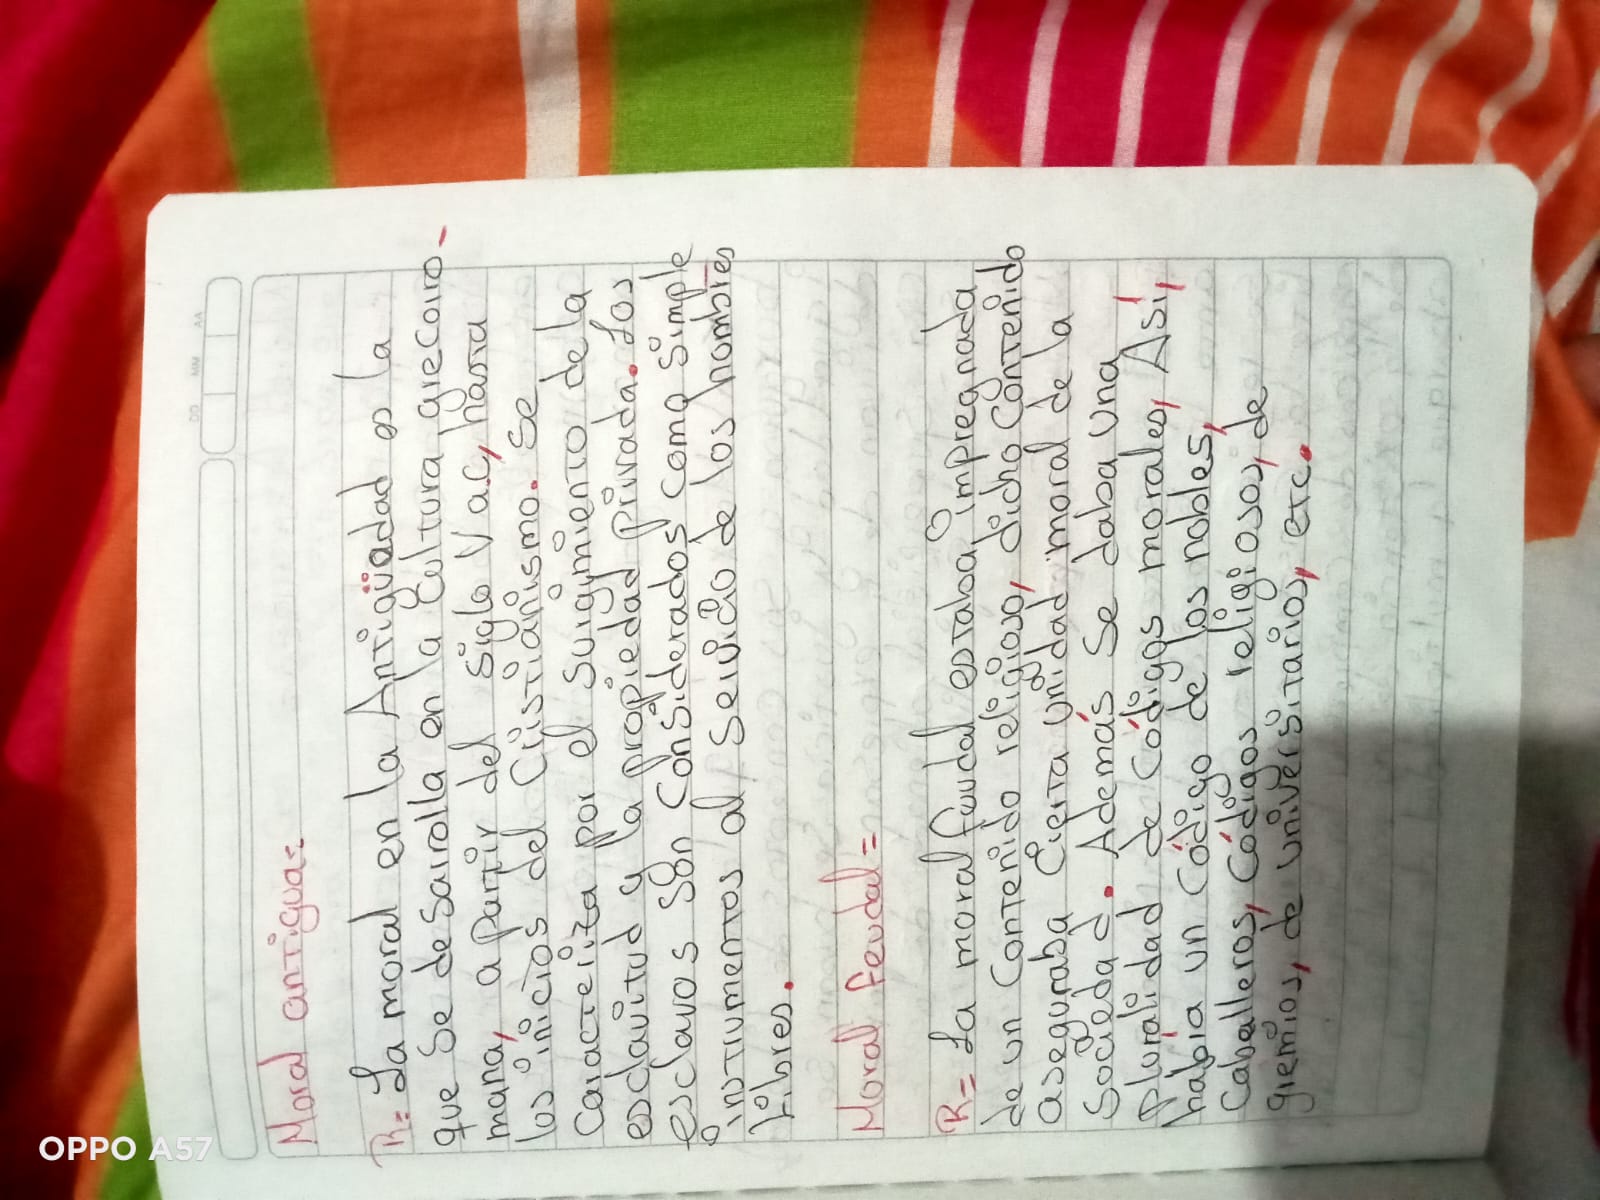 DD MM AA
Moral antigua=
R= La moral en la Antigüedad es la
que se desarolla en la Cultura grecorro-
mana, a partir del siglo V a.C, hasta
los inicios del Cristianismo. Se
Caracteriza por el surgimiento de la
esclavitud y la propiedad privada. Los
esclavos son Considerados como simple
instrumentos al servicio de los hombres
libres.
Moral feudal=
R= La moral feudal estaba impregnada
de un Contenido religioso, dicho Contenido
aseguraba Cierta unidad moral de la
Sociedad. Además se daba una
pluralidad de Códigos morales, Así,
había un Código de los nobles,
Caballeros, Códigos religiosos, de
gremios, de universitarios, etc.
OPPO A57